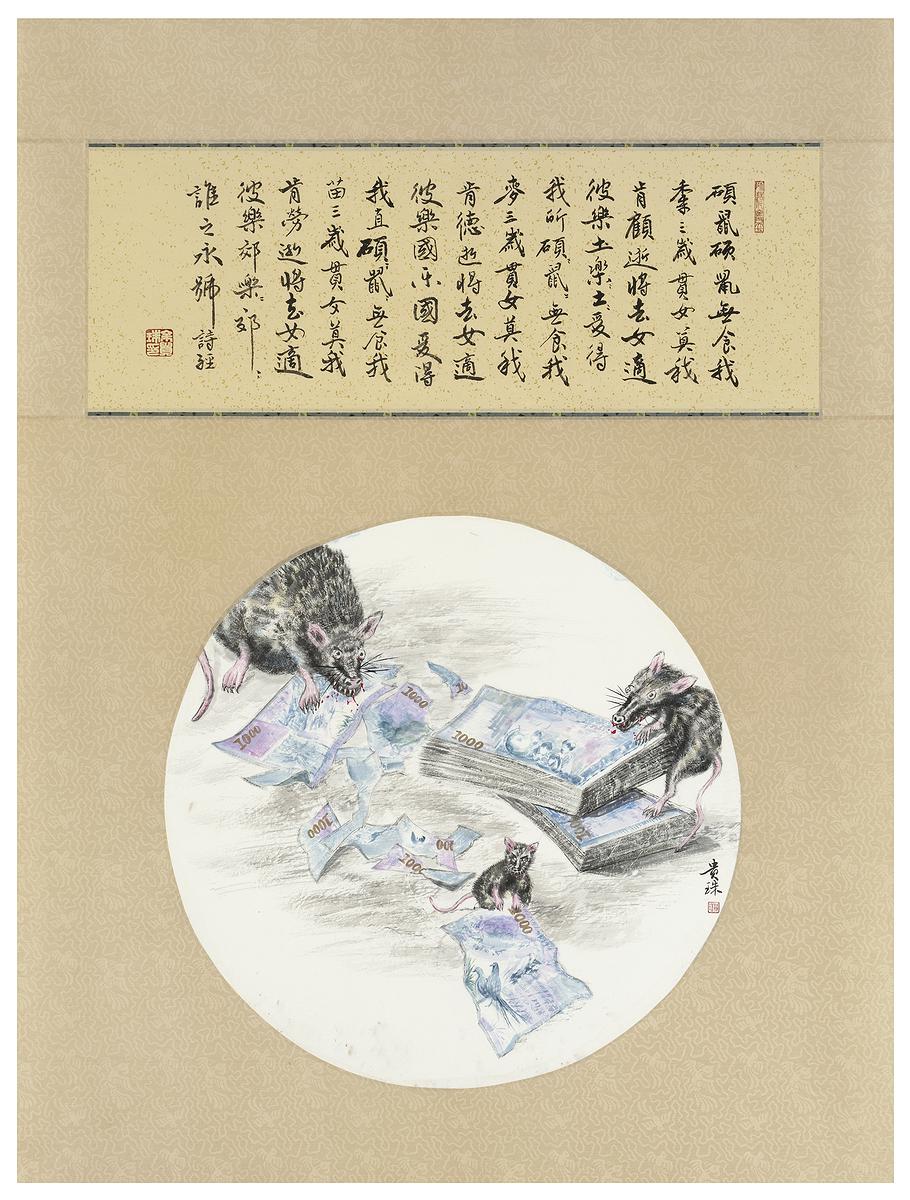 碩鼠碩鼠無食我
黍三歲貫女莫我
肯顧逝將去女適
彼樂土樂〻土〻爰得
我所碩〻鼠〻無食我
麥三歲貫女莫我
肯德逝將去女適
彼樂國乐國爰得
我直碩〻鼠〻無食我
苗三歲貫女莫我
肯勞逝將去女適
彼樂郊樂〻郊〻
誰之永號 詩經
1000
1000
1000
1000
1000
1000
貴珠